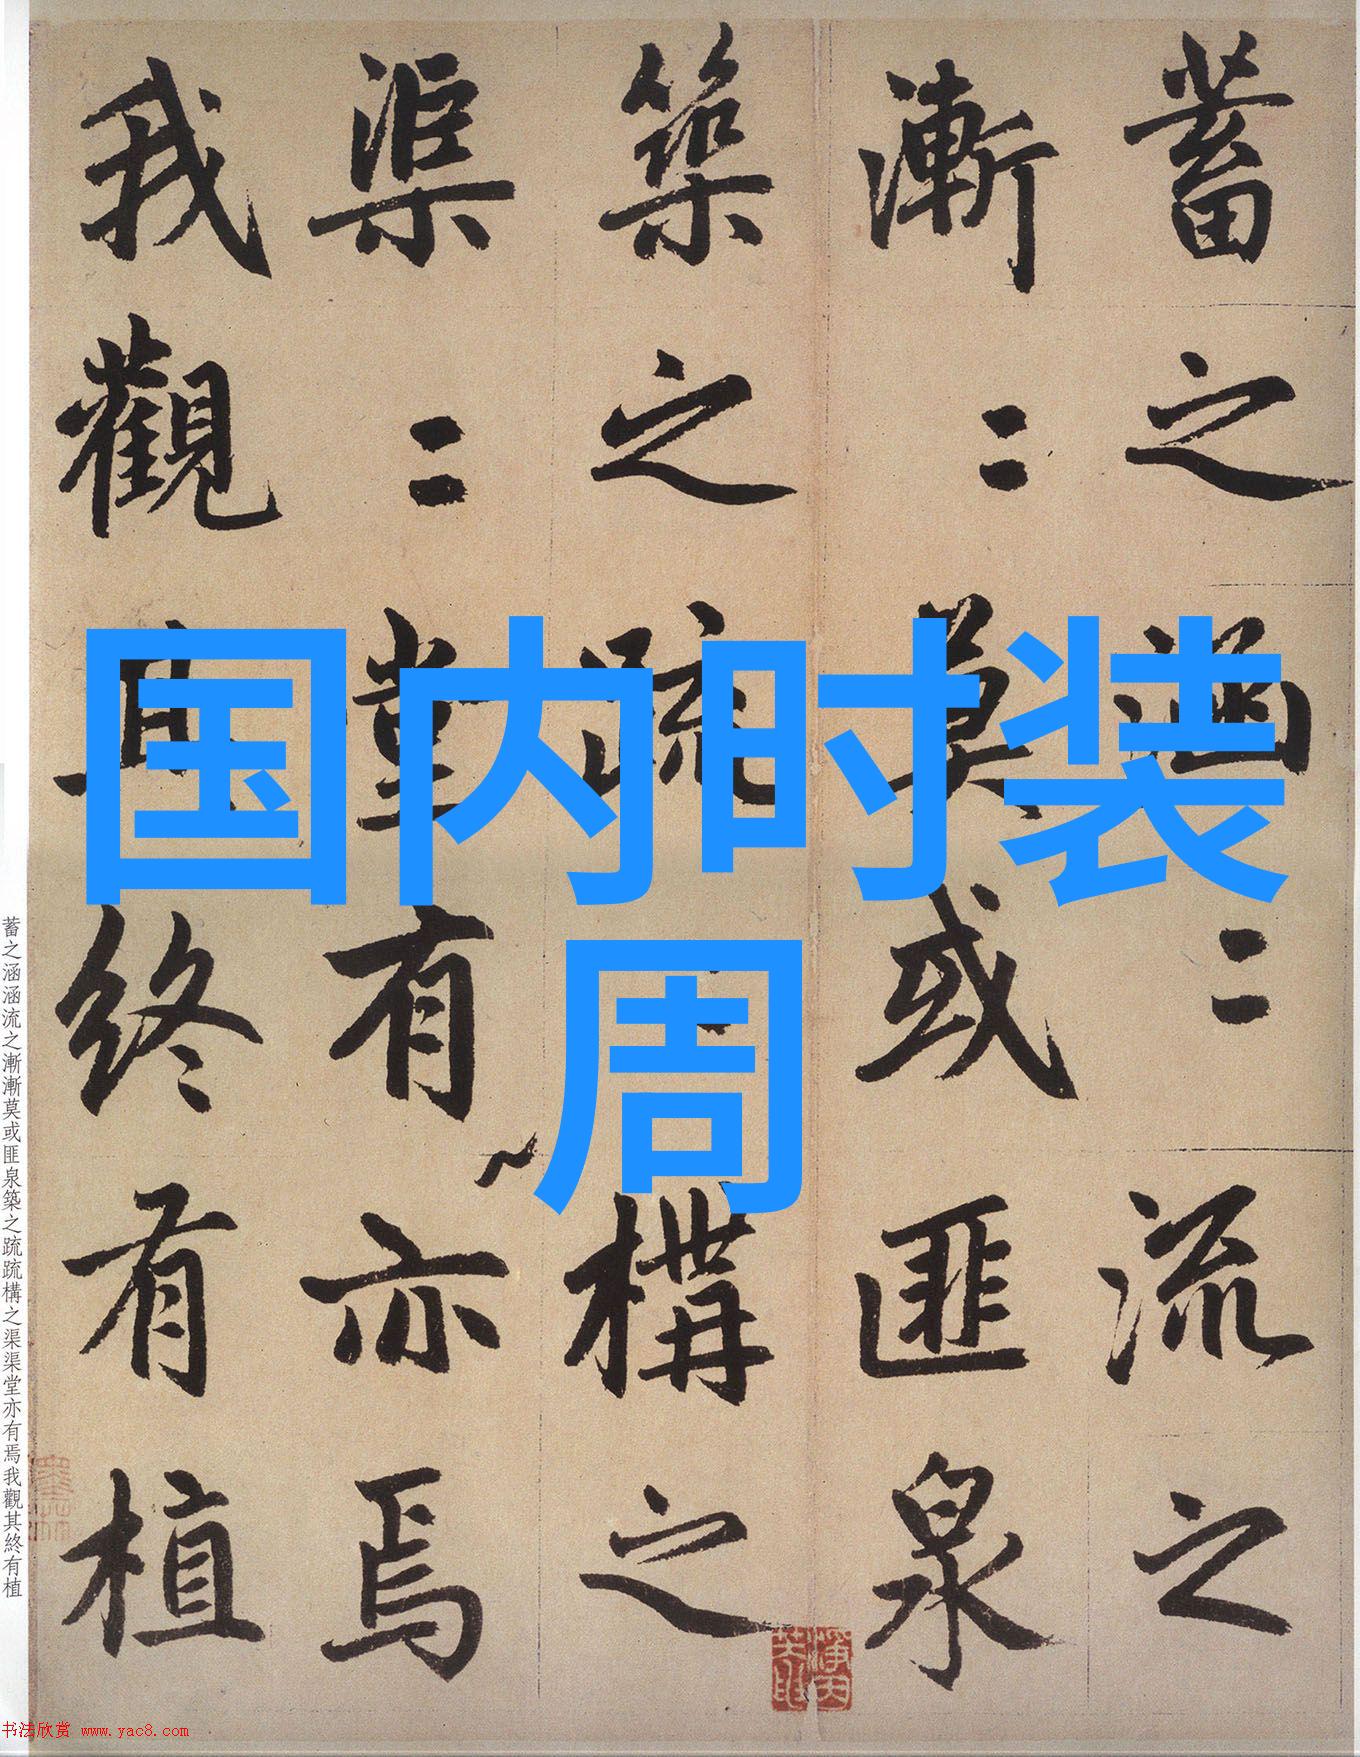 蓄之涵〻流之
漸〻莫或匪泉
築之疏〻構之
渠〻堂有亦焉
我觀其終有植
国内时装
周
蓄之涵涵流之漸漸莫或匪泉築之疏疏構之渠渠堂亦有焉我觀其終有植
书法欣赏 www.yac8.com